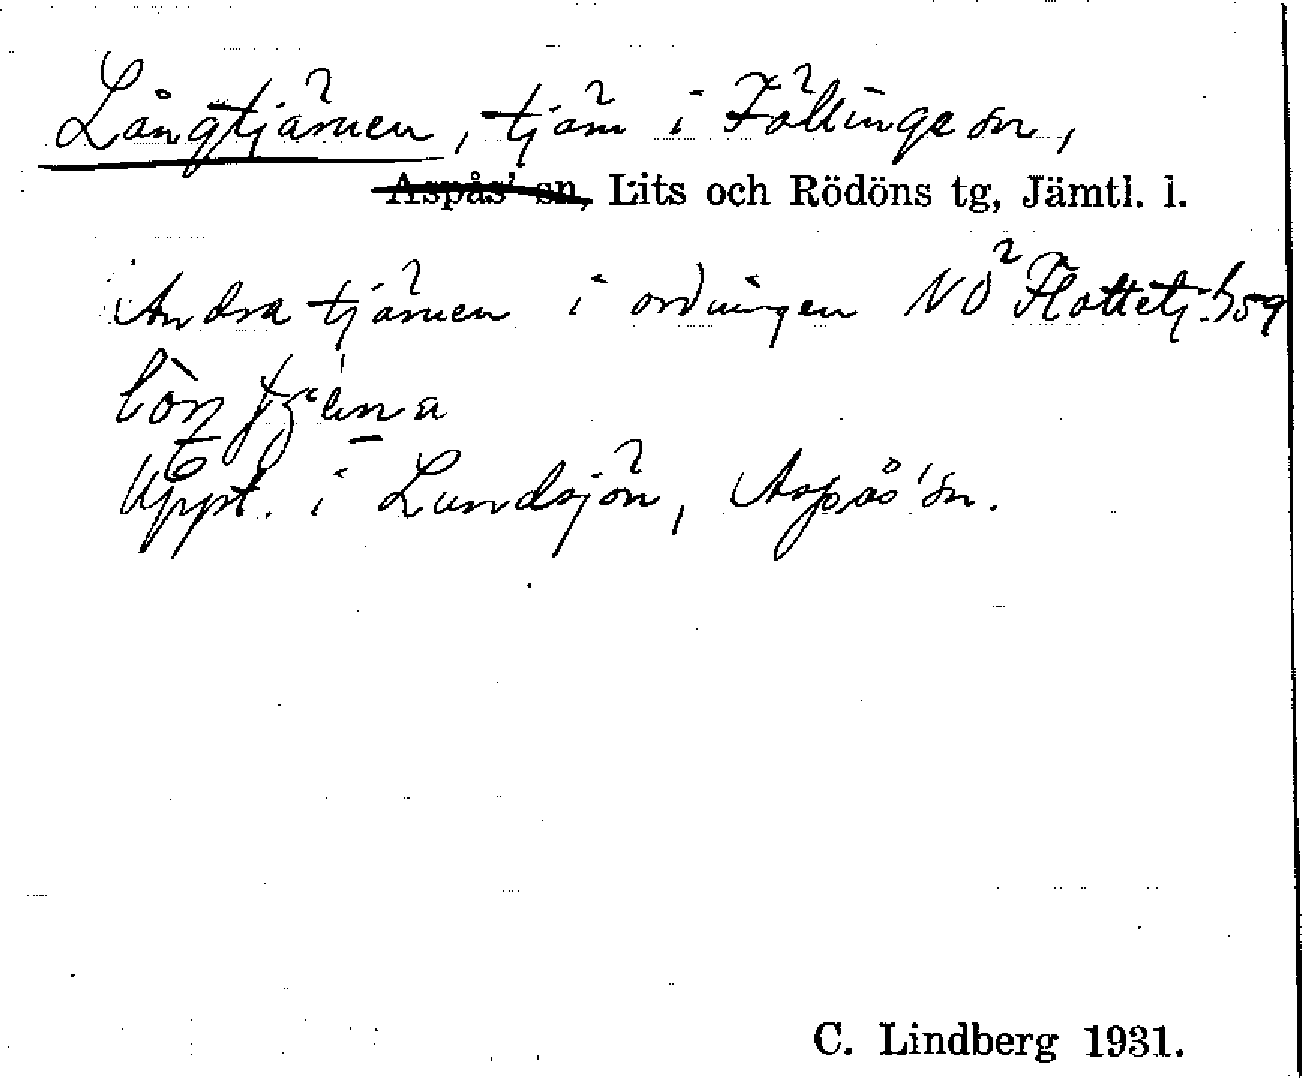 Långtjärnen, tjärn i Föllinge sn,
Aspås' sn, Lits och Rödöns tg, Jämtl. l.
Andra tjärnen i ordningen NO Flottetj.
Uppt. i Lundsjön, Aspås' sn.
C. Lindberg 1931.